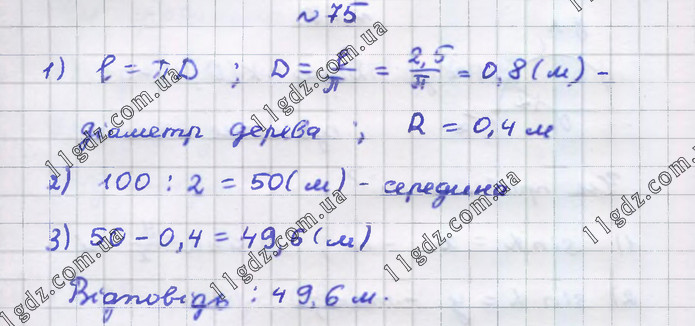 №75
1) ℓ = πD ; D = ℓ/π = 2,5/π = 0,8 (м) -
діаметр дерева ; R = 0,4 м
2) 100 : 2 = 50 (м) - середина
3) 50 - 0,4 = 49,6 (м)
Відповідь : 49,6 м.
11gdz.com.ua
11gdz.com.ua
11gdz.com.ua
11gdz.com.ua
11gdz.com.ua
11gdz.com.ua